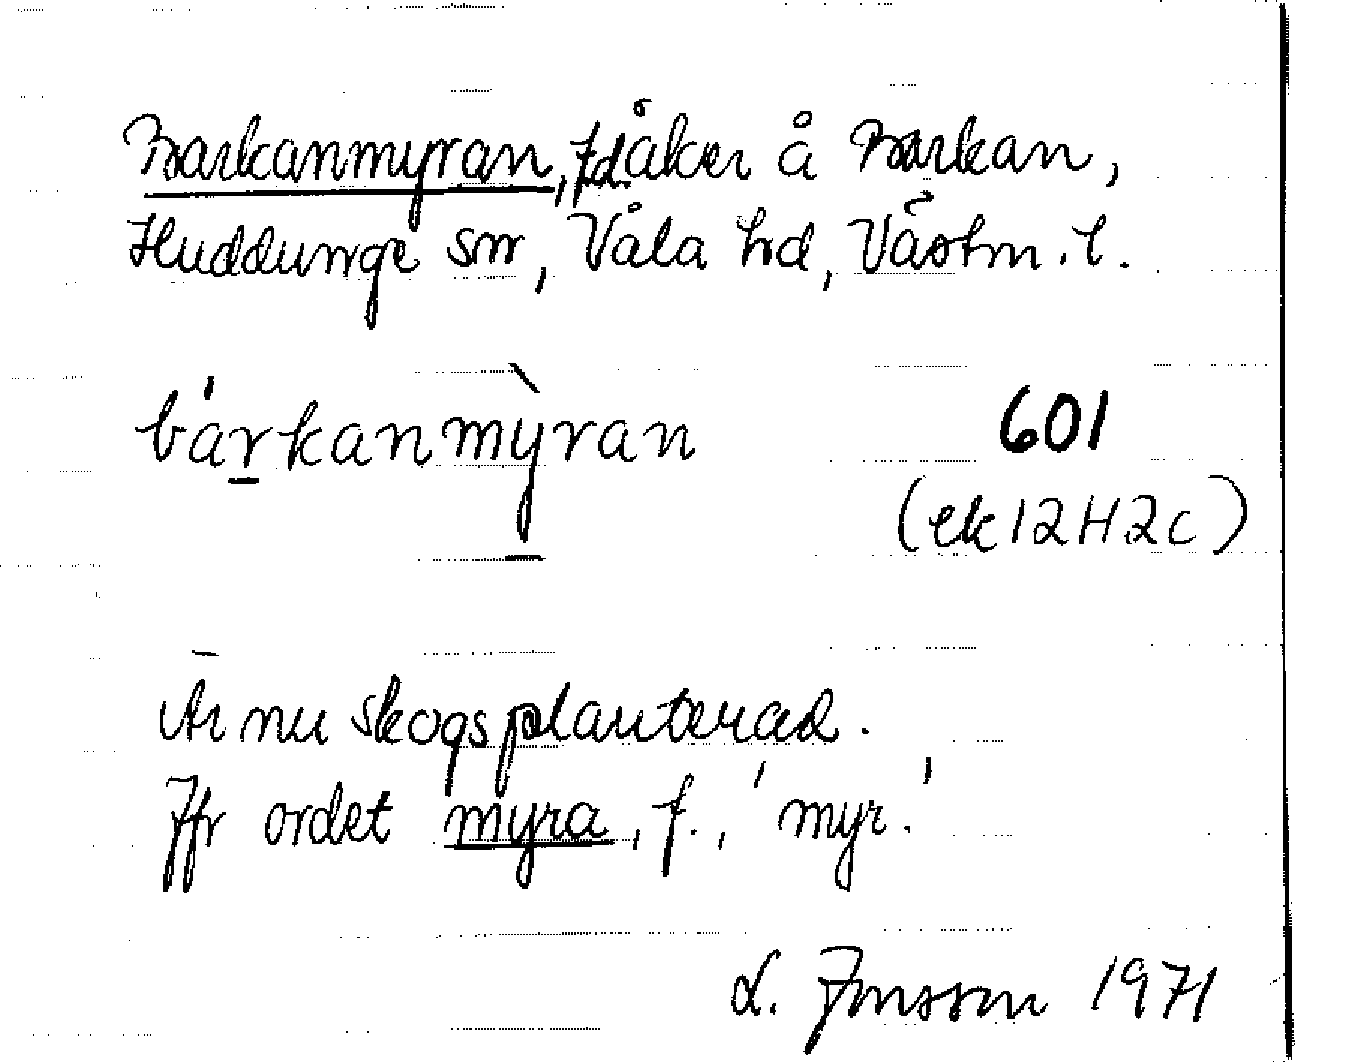 Barkanmyran, fd. åker å Barkan,
Huddunge sn, Våla hd, Västm. l.
bárkanmỳran
601
(ek 12H2c)
Är nu skogsplanterad.
Jfr ordet myra, f., 'myr.'
L. Jonsson 1971